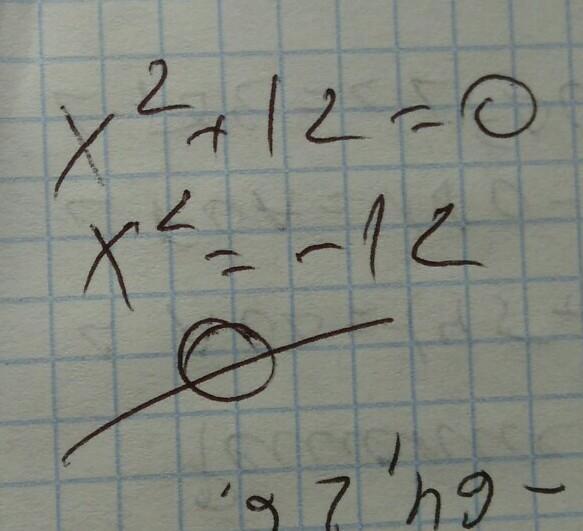 x² + 12 = 0
x² = -12
∅